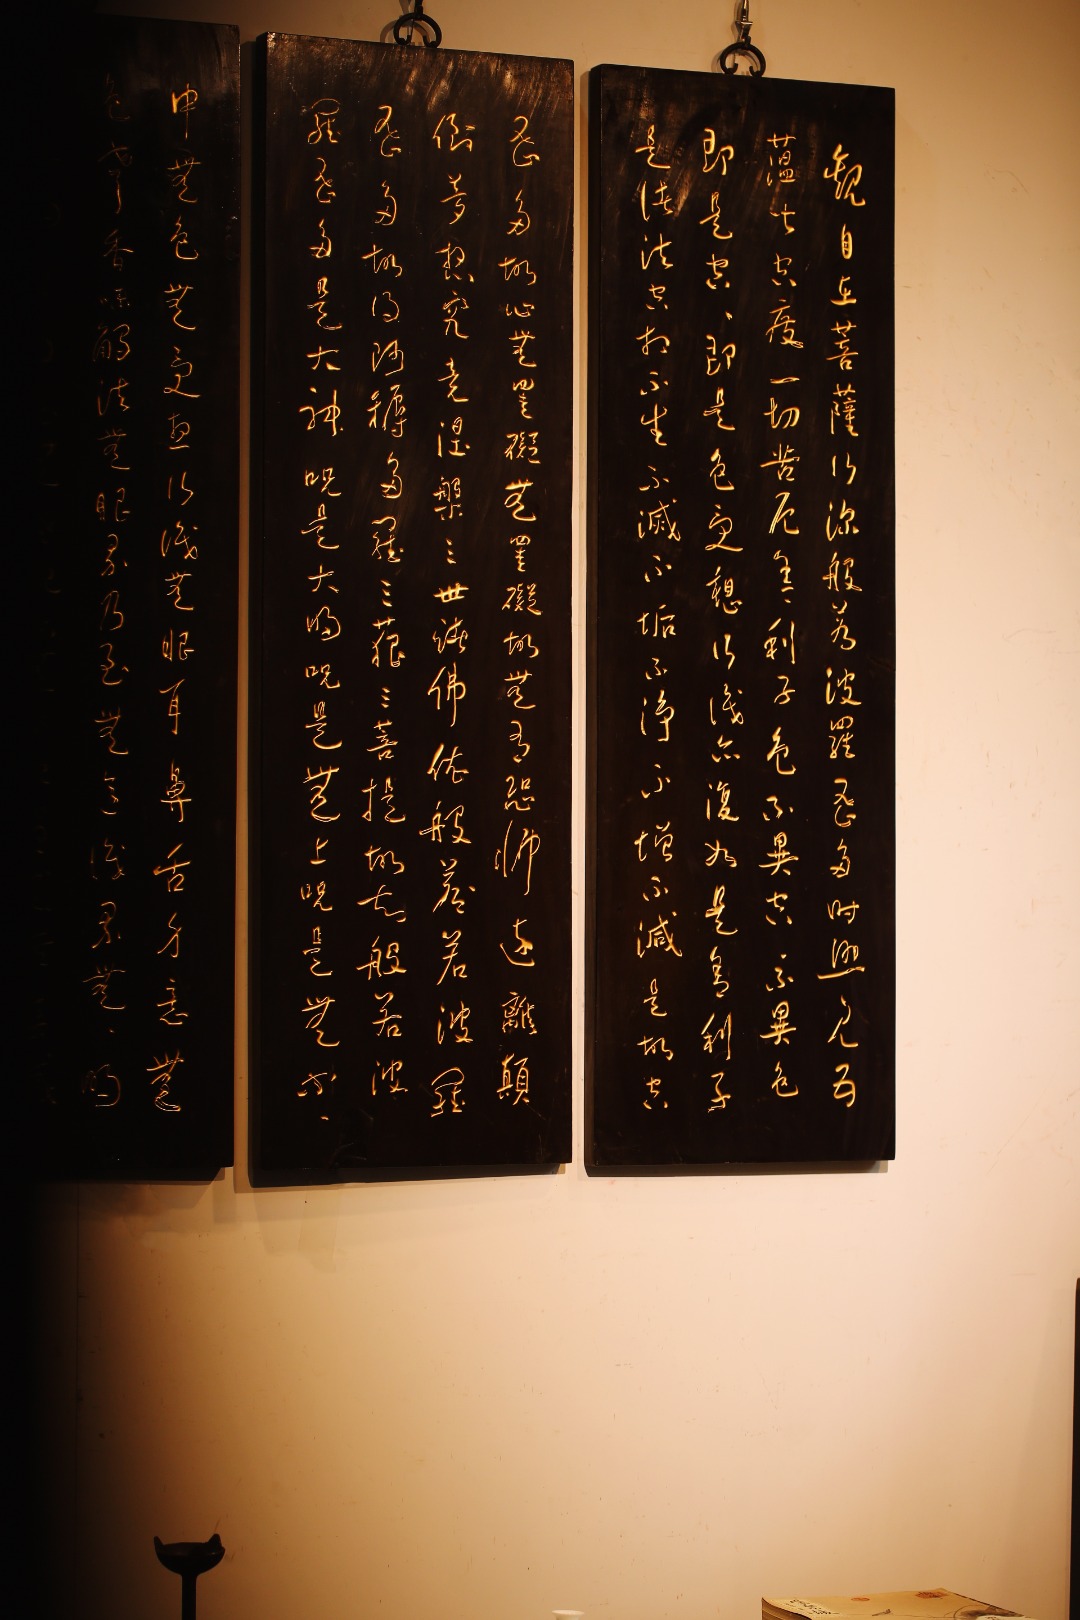 觀自在菩薩行深般若波羅蜜多時照見五
蘊皆空度一切苦厄舍利子色不異空、不異色
即是空、即是色受想行識亦復如是舍利子
是諸法空相不生不滅不垢不淨不增不減是故空
蜜多故心無罣礙無罣礙故無有恐怖遠離顛
倒夢想究竟涅槃三世諸佛依般若波羅
蜜多故得阿耨多羅三藐三菩提故知般若波
羅蜜多是大神呪是大明呪是無上呪是無等、
中無色無受想行識無眼耳鼻舌身意無
色聲香味觸法無眼界乃至無意識界無、明